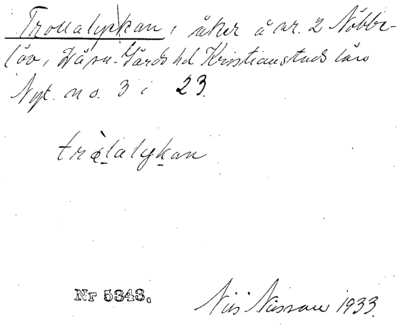 Trollalyckan, åker å nr. 2 Nöbbe-
löv, Gärds hd Kristianstads län
Nyt. n:o. 3 i 23.
tròlalykan
Nr 5343.
Nils Nilsson 1933.